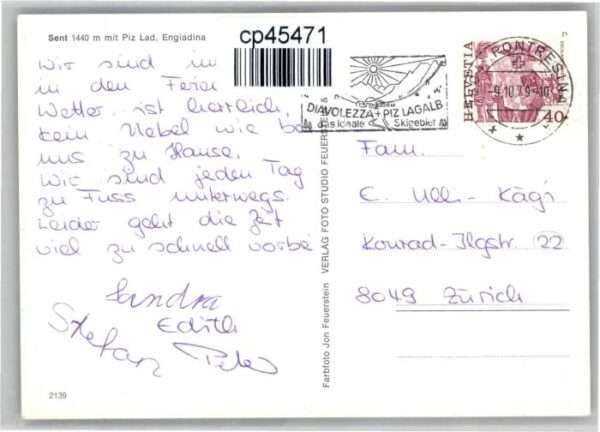 Sent 1440 m mit Piz Lad, Engiadina
cp45471
Wir sind im
in den Ferien
Wetter ist herrlich,
kein Nebel wie bei
uns zu Hause.
Wir sind jeden Tag
zu Fuss unterwegs.
Leider geht die Zeit
viel zu schnell vorbei
Sandra
Edith
Stefan Peter
2139
Farbfoto Jon Feuerstein VERLAG FOTO STUDIO FEUERSTEIN
DIAVOLEZZA + PIZ LAGALB
das ideale Skigebiet
HELVETIA
40
PONTRESINA
Fam.
E. Ulli - Kägi
Konrad-Ilgstr 22
8049 Zürich